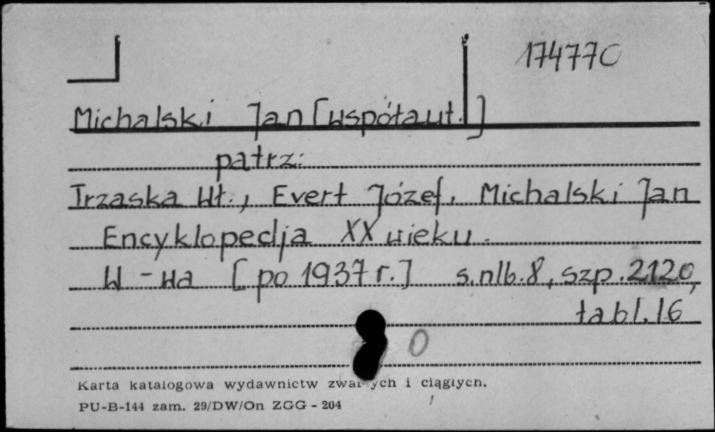 174770
Michalski Jan [współaut.]
patrz:
Trzaska Wł., Evert Józef, Michalski Jan
Encyklopedja XX wieku.
W-wa [po 1937 r.] s.nlb.8, szp.2120,
tabl.16
0
Karta katalogowa wydawnictw zwartych i ciągłych.
PU-B-144 zam. 29/DW/On ZGG - 204